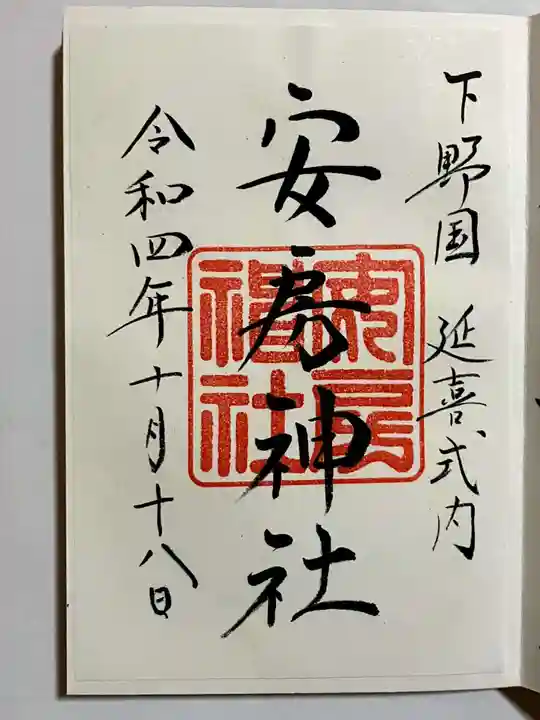 下野国 延喜式内
安房神社
安房神社
令和四年十月十八日